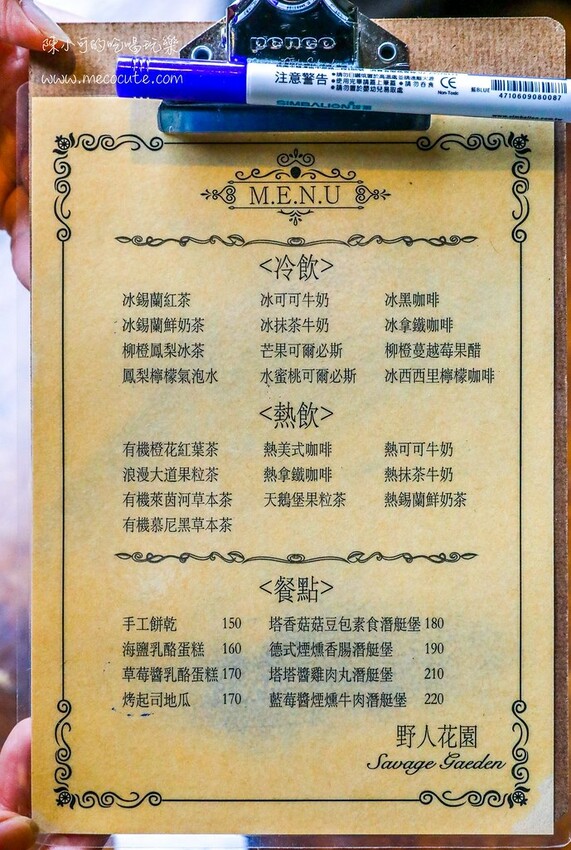 陳小可的吃喝玩樂
www.mecocute.com
penco
注意警告
CE
Non-Toxic
藍BLUE
4710609080087
SIMBALION
M.E.N.U
<冷飲>
冰錫蘭紅茶 冰可可牛奶 冰黑咖啡
冰錫蘭鮮奶茶 冰抹茶牛奶 冰拿鐵咖啡
柳橙鳳梨冰茶 芒果可爾必斯 柳橙蔓越莓果醋
鳳梨檸檬氣泡水 水蜜桃可爾必斯 冰西西里檸檬咖啡
<熱飲>
有機橙花紅葉茶 熱美式咖啡 熱可可牛奶
浪漫大道果粒茶 熱拿鐵咖啡 熱抹茶牛奶
有機萊茵河草本茶 天鵝堡果粒茶 熱錫蘭鮮奶茶
有機慕尼黑草本茶
<餐點>
手工餅乾 150 塔香菇菇豆包素食潛艇堡 180
海鹽乳酪蛋糕 160 德式煙燻香腸潛艇堡 190
草莓醬乳酪蛋糕 170 塔塔醬雞肉丸潛艇堡 210
烤起司地瓜 170 藍莓醬煙燻牛肉潛艇堡 220
野人花園
Savage Gaeden